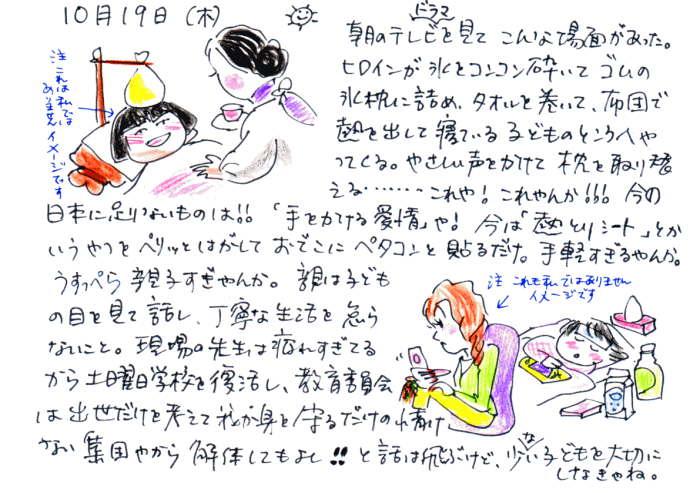 10月19日(木)
朝のテレビドラマを見て こんな場面があった。
ヒロインが氷をコンコン砕いて ゴムの
氷枕に詰め、タオルを巻いて、布団で
熱を出して寝ている子どものところへや
ってくる。やさしい声をかけて 枕を取り替
える・・・・・・・・これや！これやんか！！！今の
日本に足りないものは！！「手をかける愛情」や！ 今は「熱とりシート」とか
いうやつを ペリッとはがして おでこに ペタコンと貼るだけ。手軽すぎるやんか。
うすっぺら親子すぎやんか。 親は子ども
の目を見て話し、丁寧な生活を怠ら
ないこと。現場の先生は疲れすぎてる
から土曜日学校を復活し、教育委員会
は出世だけを考えて我が身を守るだけの情け
ない集団やから解体してもよし！！ と話は飛ぶけど、少ない子どもを大切に
しなきゃね。
注 これは私では
ありません
イメージです
注 これも私ではありません
イメージです